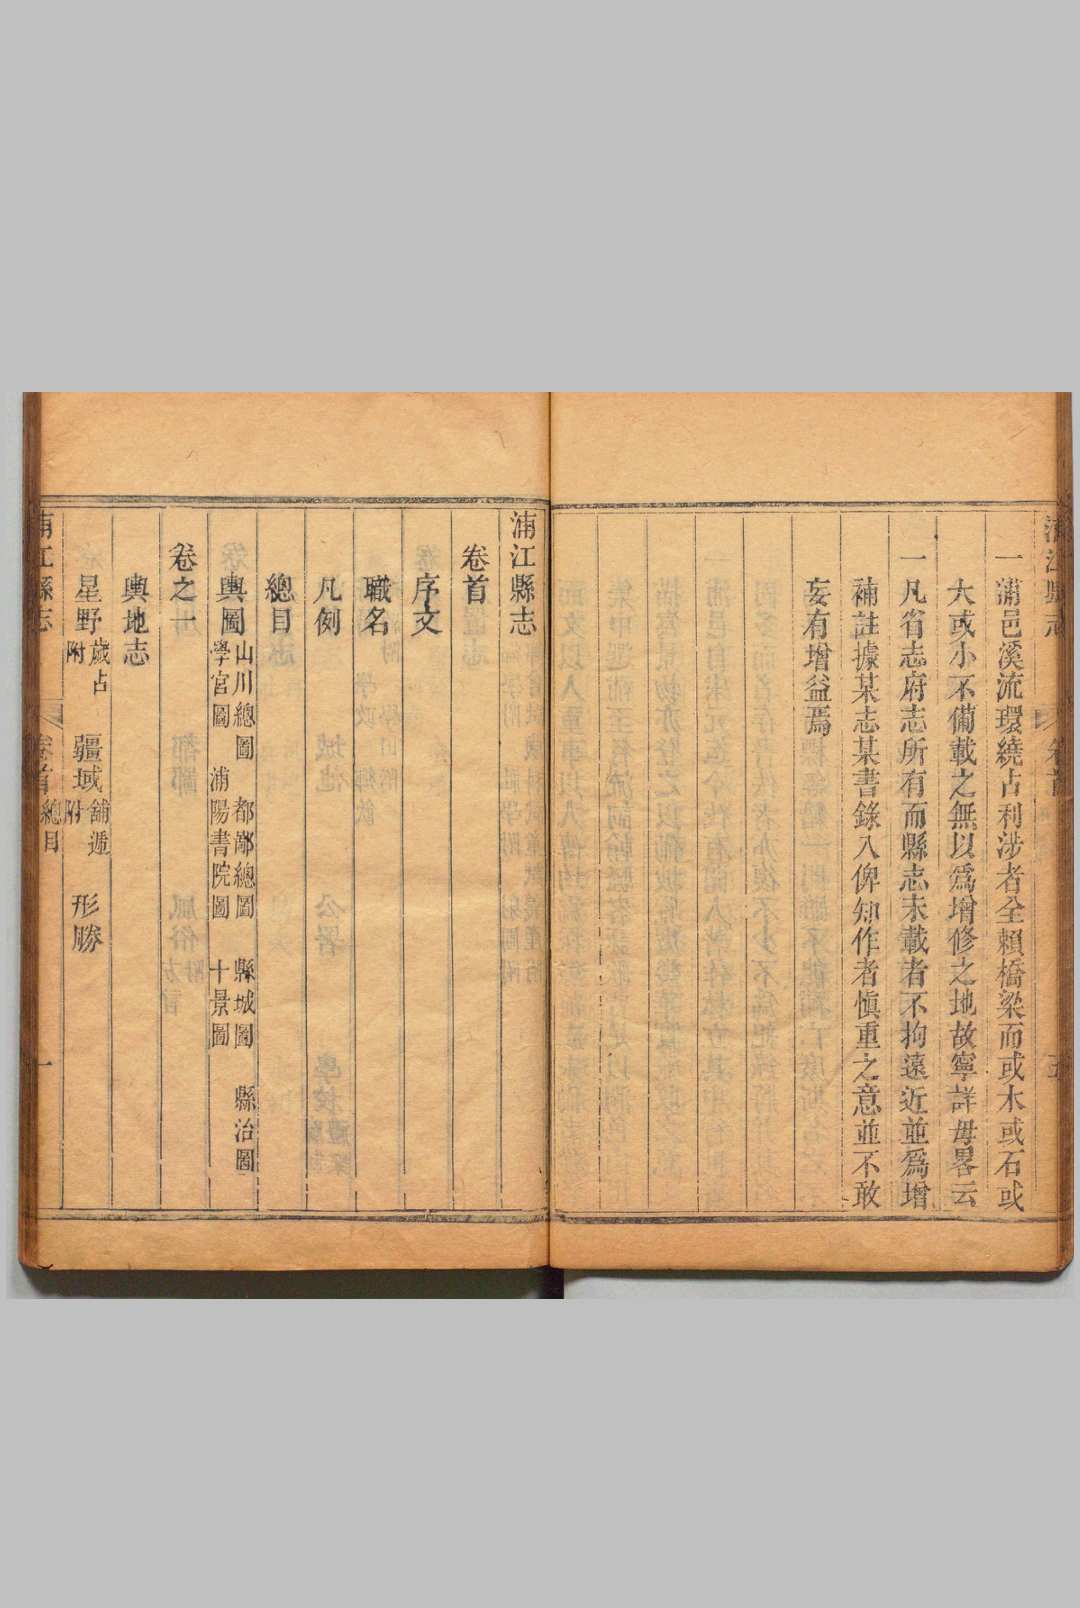 一蒲邑溪流環繞占利涉者全賴橋梁而或木或石或
大或小不僃載之無以爲增修之地故寧詳毋畧云
一凡省志府志所有而縣志未載者不拘遠近並爲增
補註據某志某書錄入俾知作者愼重之意並不敢
妄有增益焉
浦江縣志
卷首
序文
職名
凡例
總目
輿圖 山川總圖 都鄙總圖 縣城圖 縣治圖
學宮圖 浦陽書院圖 十景圖
卷之一
輿地志
星野 歲占附 疆域 舖遞附 形勝
浦江縣志 卷首 總目 一